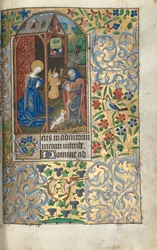 eus in adiutoriu
m meum intende.
Domine ad